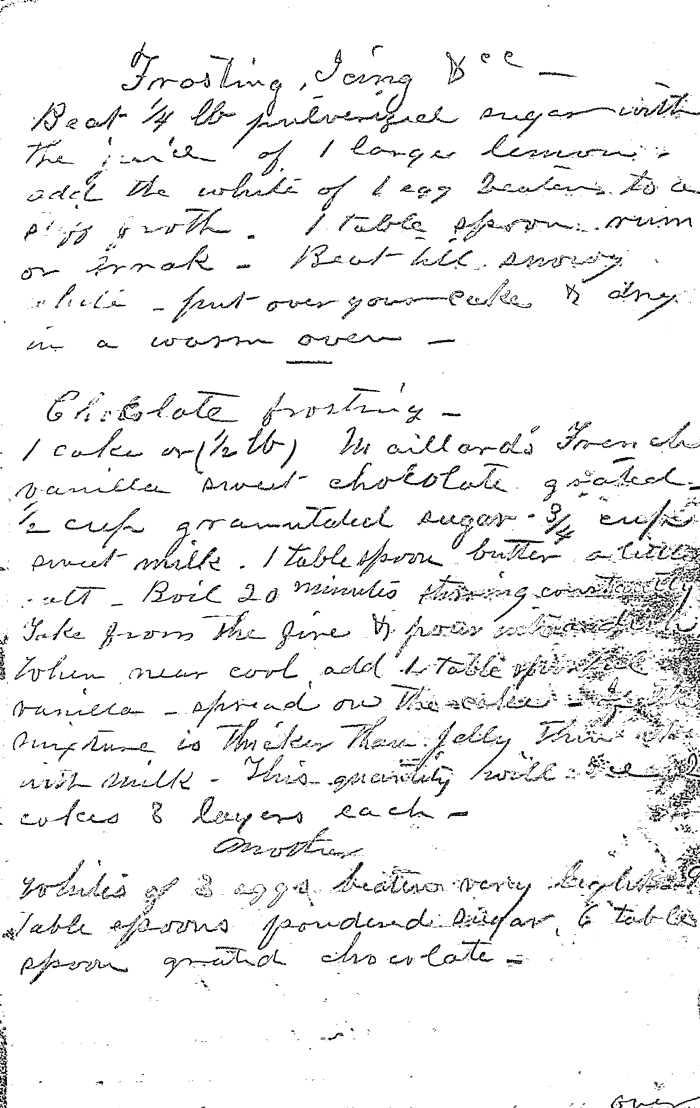 Frosting, Icing &cc —
Beat 1/4 lb pulverized sugar with
the juice of 1 large lemon.
add the white of 1 egg beaten to a
stiff froth. 1 table spoon rum
or Arrak - Beat till snowy
white - put over your cake & dry
in a warm oven —
Chocolate frosting —
1 cake or (1/2 lb) Maillard's French
vanilla sweet chocolate grated -
1/2 cup granulated sugar - 3/4 cup
sweet milk. 1 tablespoon butter a little
salt - Boil 20 minutes stirring constantly
Take from the fire & pour into a
When near cool add 1 table spoonful
vanilla - spread on the cake - if the
mixture is thicker than jelly thin
with milk - This quantity will
cakes 3 layers each -
Another
Whites of 3 eggs beaten very light
table spoons powdered sugar, 6 table
spoon grated chocolate -
over